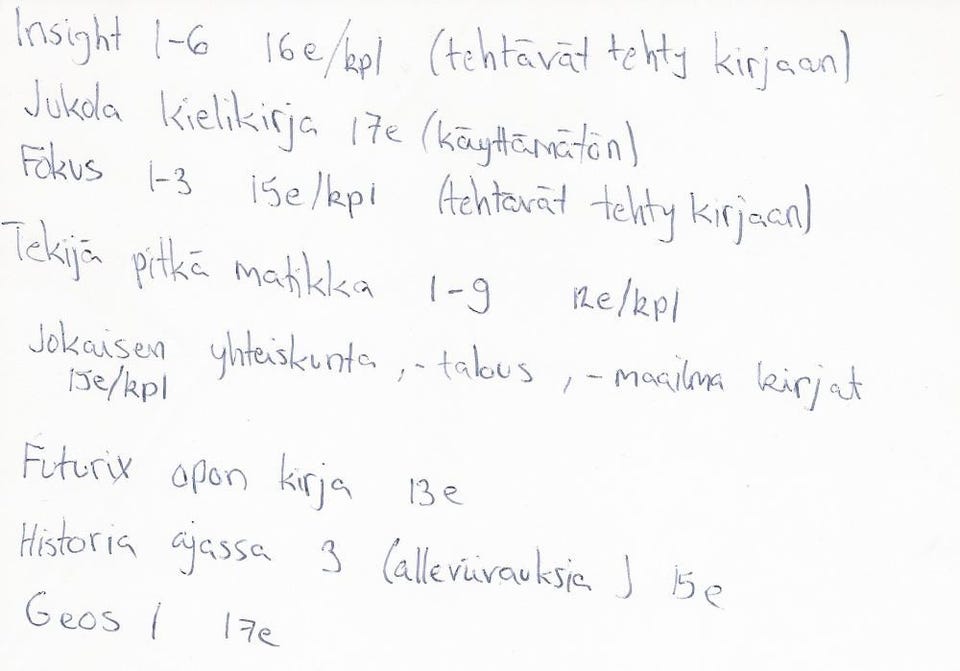 Insight 1-6 16e/kpl (tehtävät tehty kirjaan)
Jukola kielikirja 17e (käyttämätön)
Fokus 1-3 15e/kpl (tehtävät tehty kirjaan)
Tekijä pitkä matikka 1-9 12e/kpl
Jokaisen yhteiskunta, -talous, -maailma kirjat
15e/kpl
Futurix opon kirja 13e
Historia ajassa 3 (alleviivauksia) 15e
Geos 1 17e